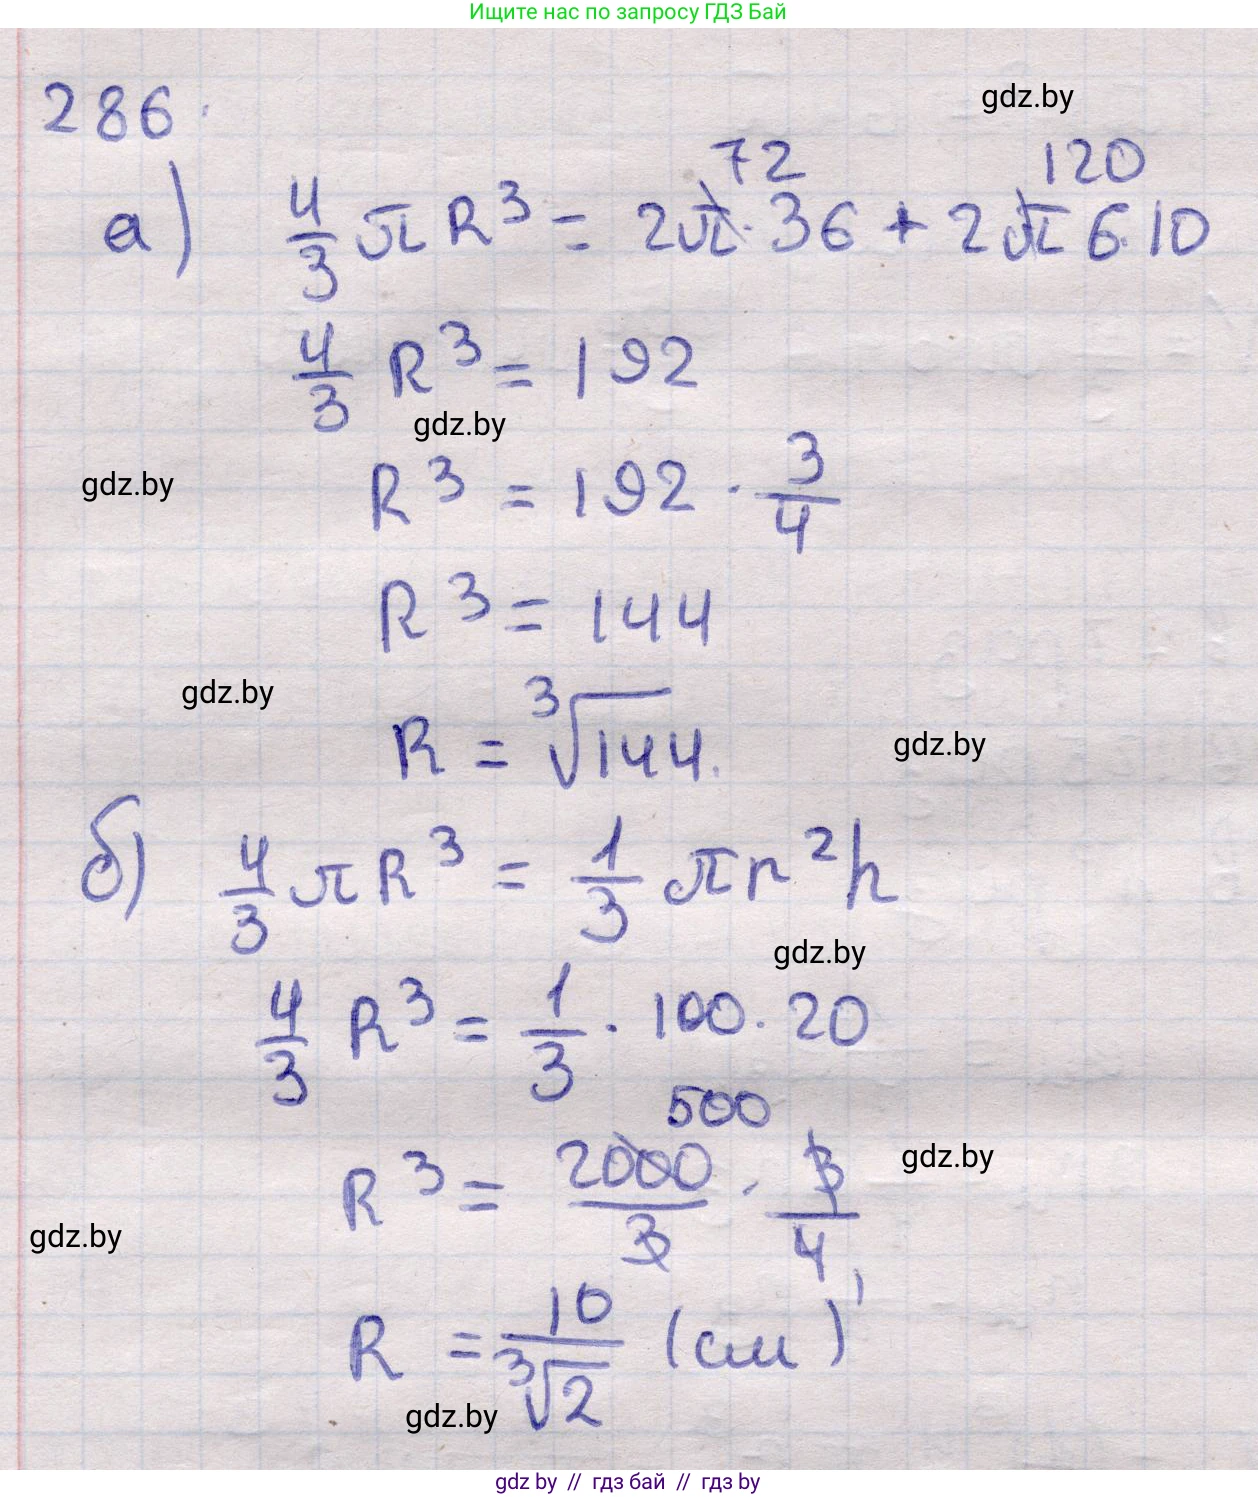 Ищите нас по запросу ГДЗ Бай
286.
gdz.by
72 120
а) 4/3 π R³ = 2π · 36 + 2π 6·10
4/3 R³ = 192
gdz.by
gdz.by
R³ = 192 · 3/4
R³ = 144
gdz.by
R = ³√144.
gdz.by
б) 4/3 π R³ = 1/3 π r² h
gdz.by
4/3 R³ = 1/3 · 100 · 20
500
R³ = 2000/3 · 3/4
gdz.by
gdz.by
R = 10/³√2 (см)
gdz.by
gdz by // гдз бай // гдз by